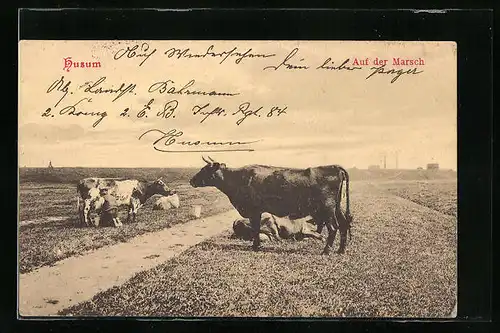 Husum
Auf der Marsch
Auf Wiedersehen
Dein lieber
Bahrmann
2. Komp 2. E. B. Inftr. Rgt. 84
Husum